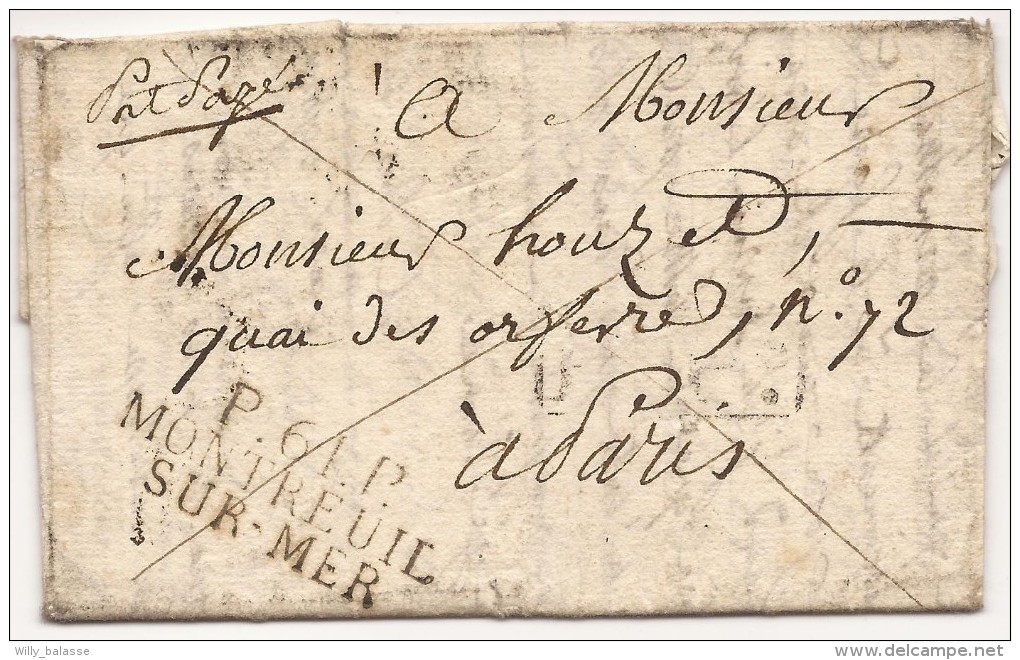 Port Payé
à Monsieur
Monsieur houzet,
quai des orferres, n.° 72
à Paris
P. 61. P.
MONTREUIL
SUR-MER
Willy_balasse
delcampe.net